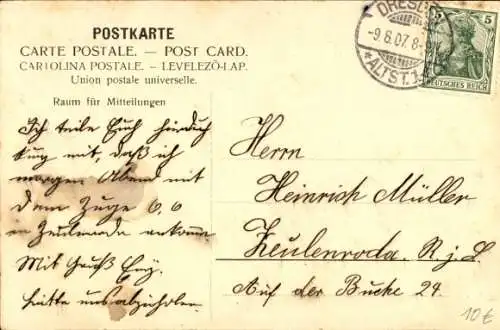 POSTKARTE
CARTE POSTALE. — POST CARD.
CARTOLINA POSTALE. — LEVELEZŐ-LAP.
Union postale universelle.
Raum für Mitteilungen
Ich teile Euch hierdurch
kurz mit, daß ich
morgen Abend mit
dem Zuge 6,6
in Zeulenroda ankomme
Mit Gruß
bitte uns abzuholen.
DRESDEN
-9.8.07. 8-
*ALTST. 1
5 5
DEUTSCHES REICH
Herrn
Heinrich Müller
Zeulenroda. R. j. L.
Auf der Bucke 24.
10 €